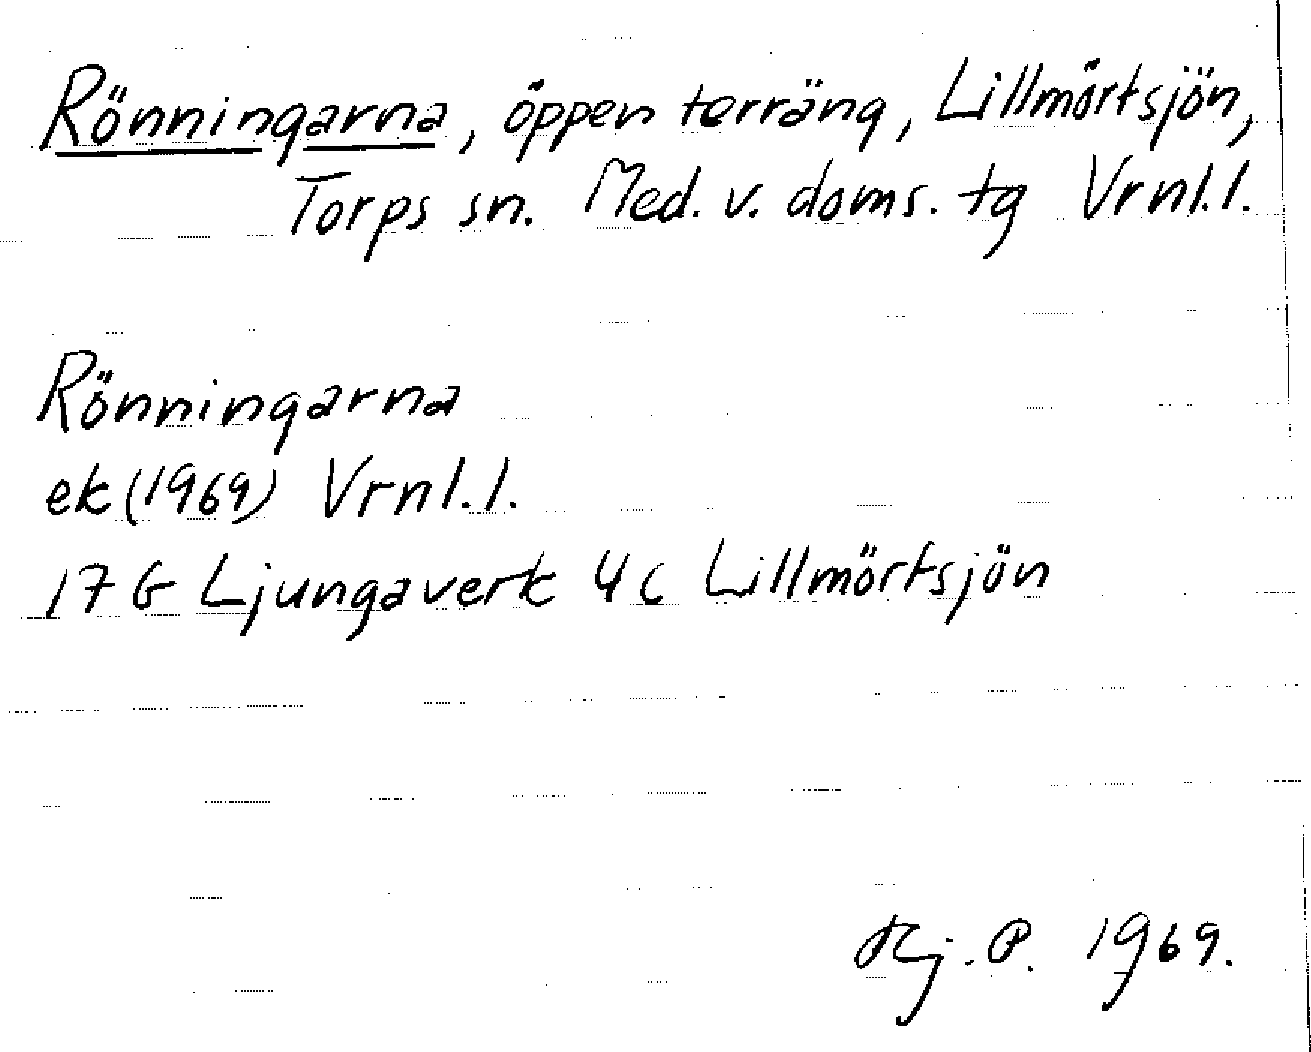 Rönningarna, öppen terräng, Lillmörtsjön,
Torps sn. Med. v. doms. tg Vrnl.l.
Rönningarna
ek (1969) Vrnl.l.
17 G Ljungaverk 4 c Lillmörtsjön
Kj. P. 1969.